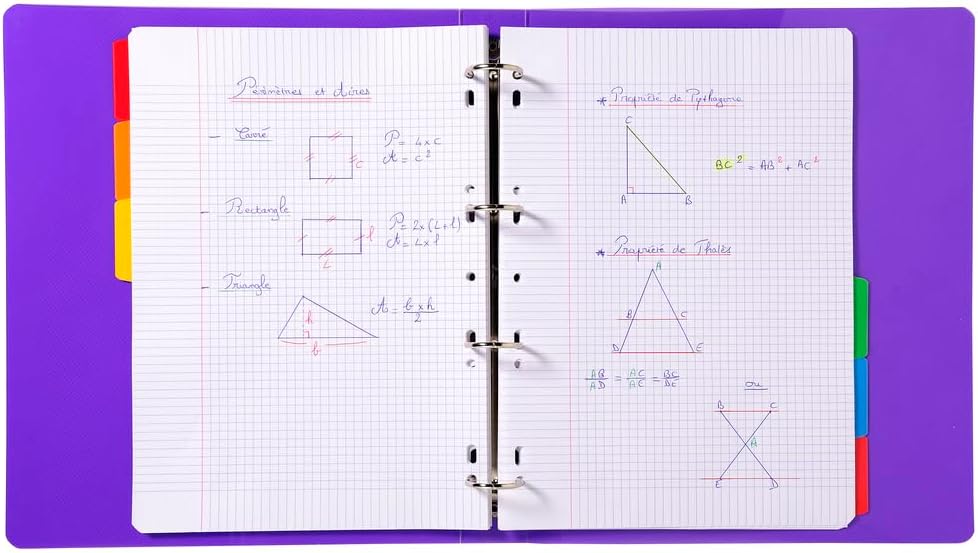 Périmètres et Aires
- Carré
c
P = 4 x c
A = c²
- Rectangle
l
L
P = 2x (L + l)
A = L x l
- Triangle
h
b
A = b x h / 2
* Propriété de Pythagore
C
A B
BC² = AB² + AC²
* Propriété de Thalès
A
B C
D E
AB/AD = AC/AC = BC/DC
ou
B C
A
E D